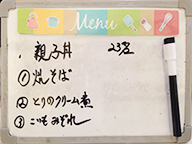 Menu
・親子丼 23名
①焼そば
②とりのクリーム煮
③こつも みぞれ